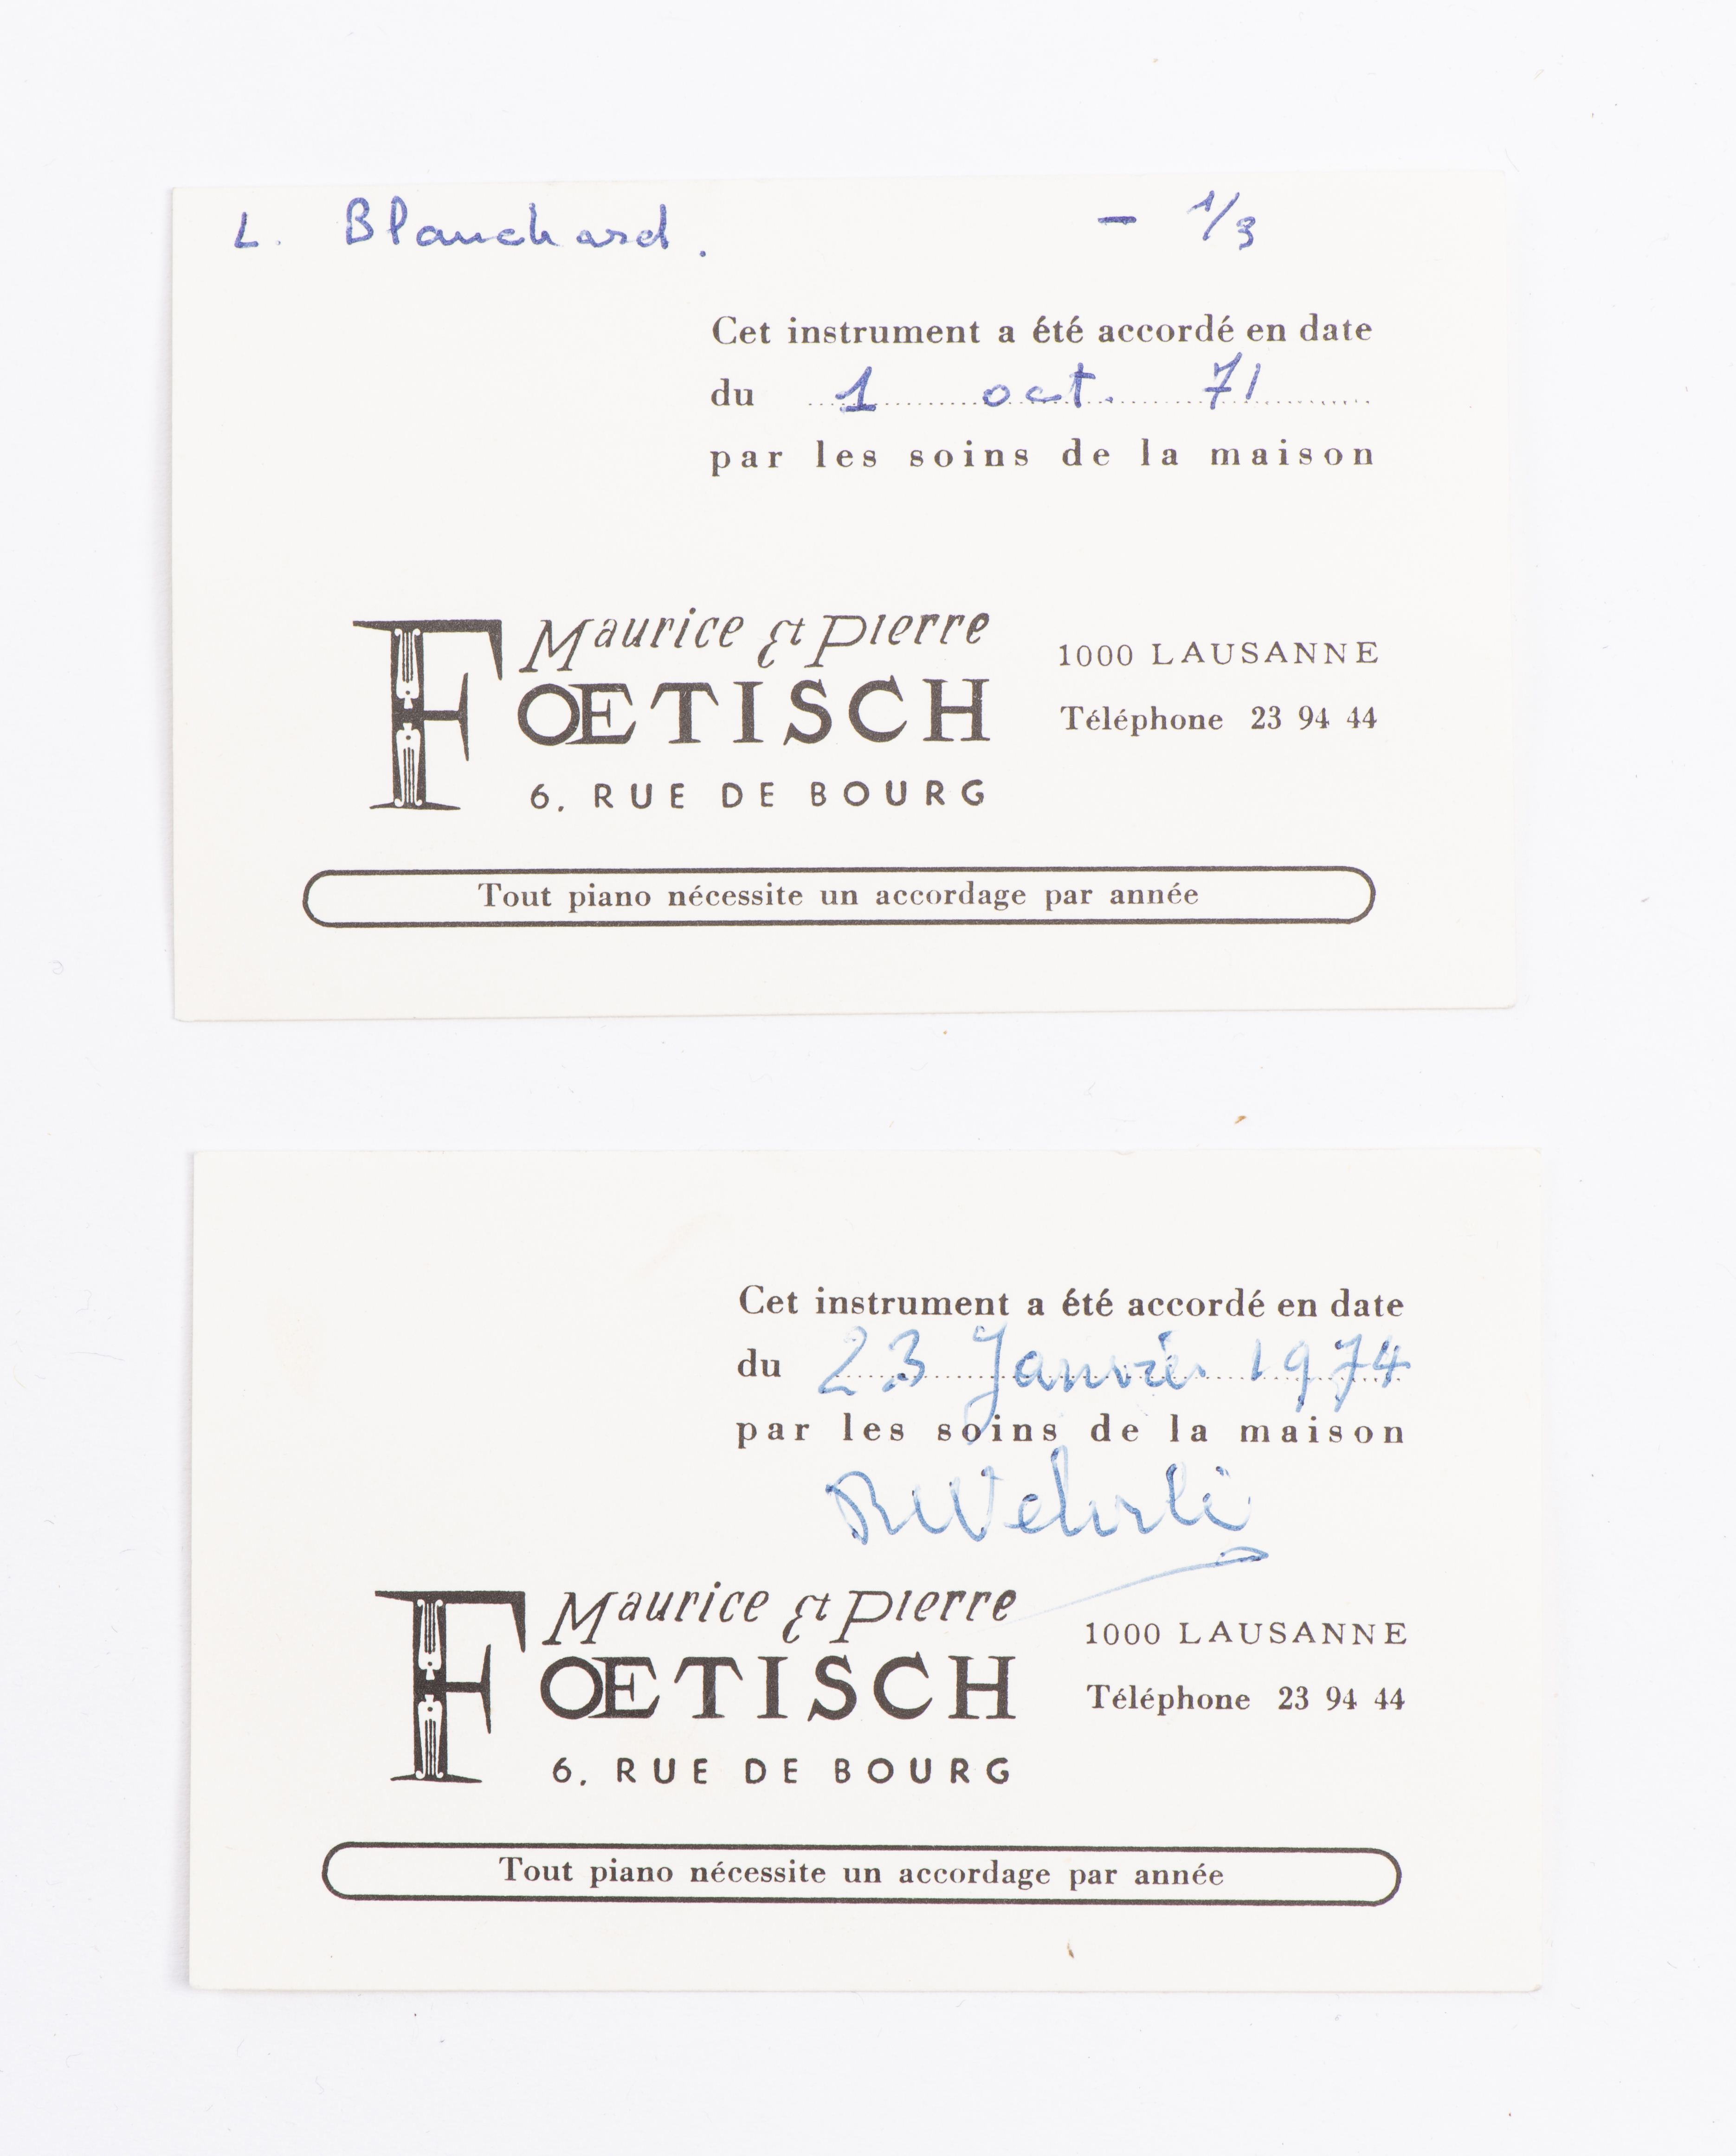 L. Blanchard. - 1/3
Cet instrument a été accordé en date
du 1 oct. 71
par les soins de la maison
Maurice et Pierre
FOETISCH
6, RUE DE BOURG
1000 LAUSANNE
Téléphone 23 94 44
Tout piano nécessite un accordage par année
Cet instrument a été accordé en date
du 23 Janvier 1974
par les soins de la maison
R Wehrli
Maurice et Pierre
FOETISCH
6, RUE DE BOURG
1000 LAUSANNE
Téléphone 23 94 44
Tout piano nécessite un accordage par année